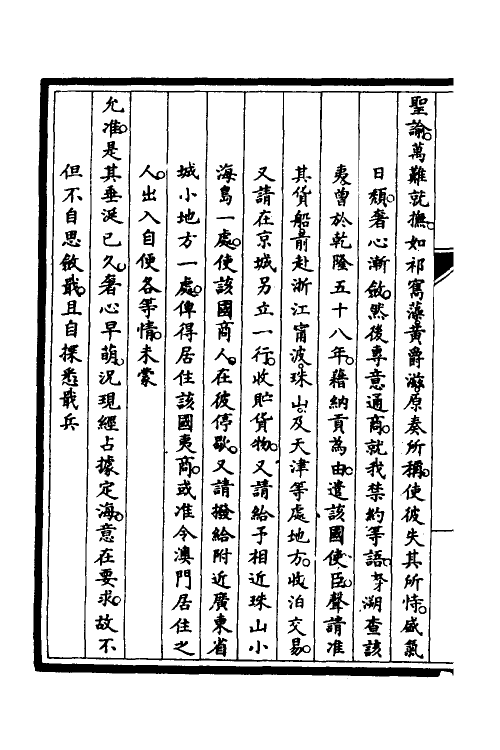 聖諭。萬難就撫。如祁寯藻黃爵滋原奏所稱。使彼失其所恃。盛氣
日頹。奢心漸斂。然後專意通商。就我禁約等語。茅溯查該
夷曾於乾隆五十八年。藉納貢為由。遣該國使臣。聲請准
其貨船前赴浙江甯波珠山及天津等處地方。收泊交易。
又請在京城另立一行。收貯貨物。又請給予相近珠山小
海島一處。使該國商人。在彼停歇。又請撥給附近廣東省
城小地方一處。俾得居住該國夷商。或准令澳門居住之
人。出入自便各等情。未蒙
允准。是其垂涎已久。奢心早萌。況現經占據定海。意在要求。故不
但不自思斂戢。且自揆悉戢兵